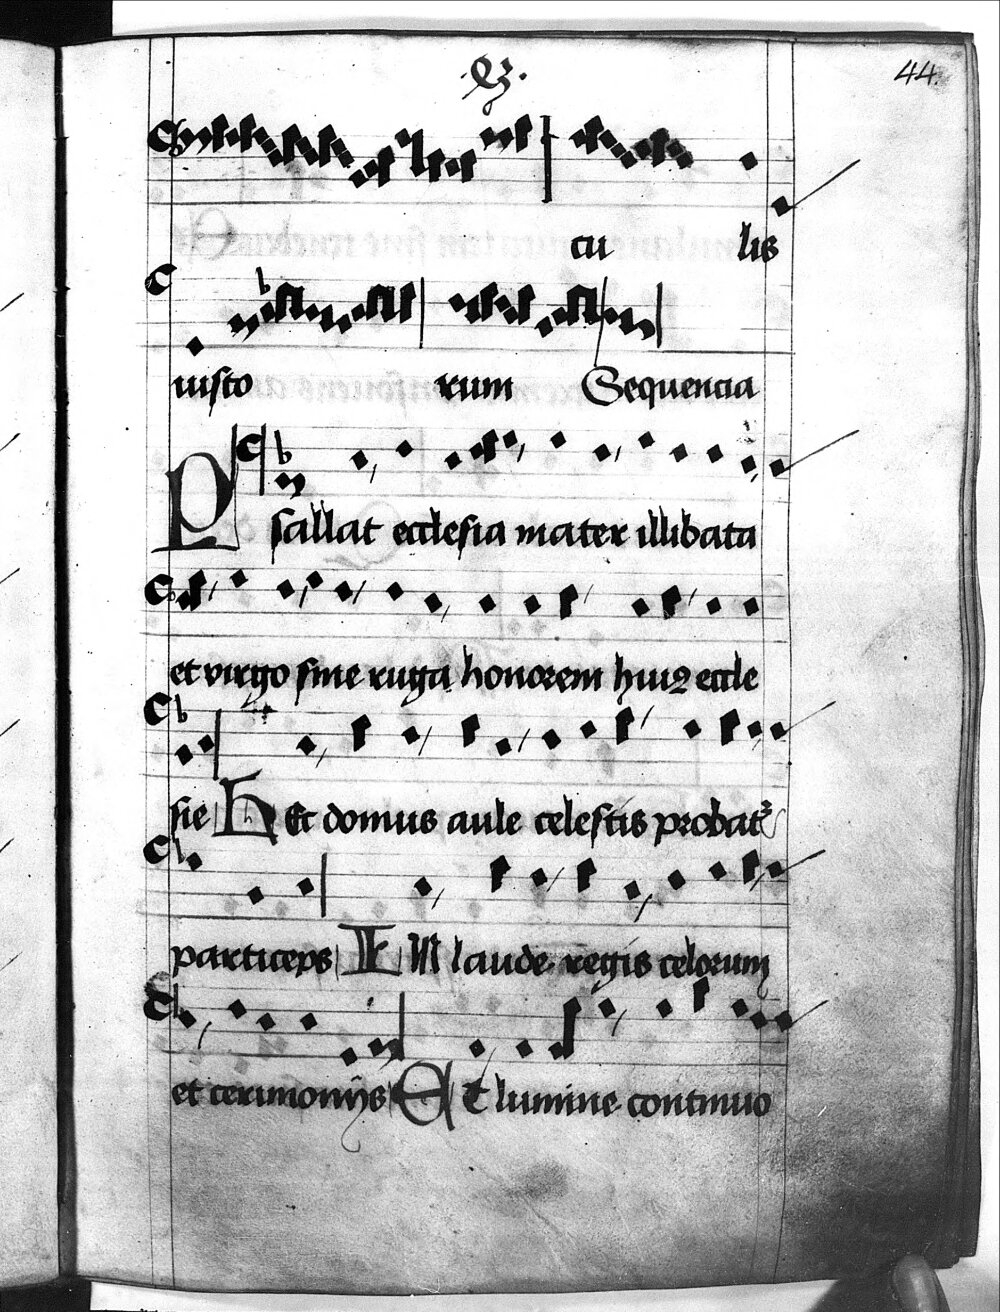 44
cu lis
iusto rum Sequencia
Psallat ecclesia mater illibata
et virgo sine ruga honorem huiꝯ eccle
sie hEc domus aule celestis probatᷣ
particeps IN laude regis celorum
et cerimonijs ET lumine continuo